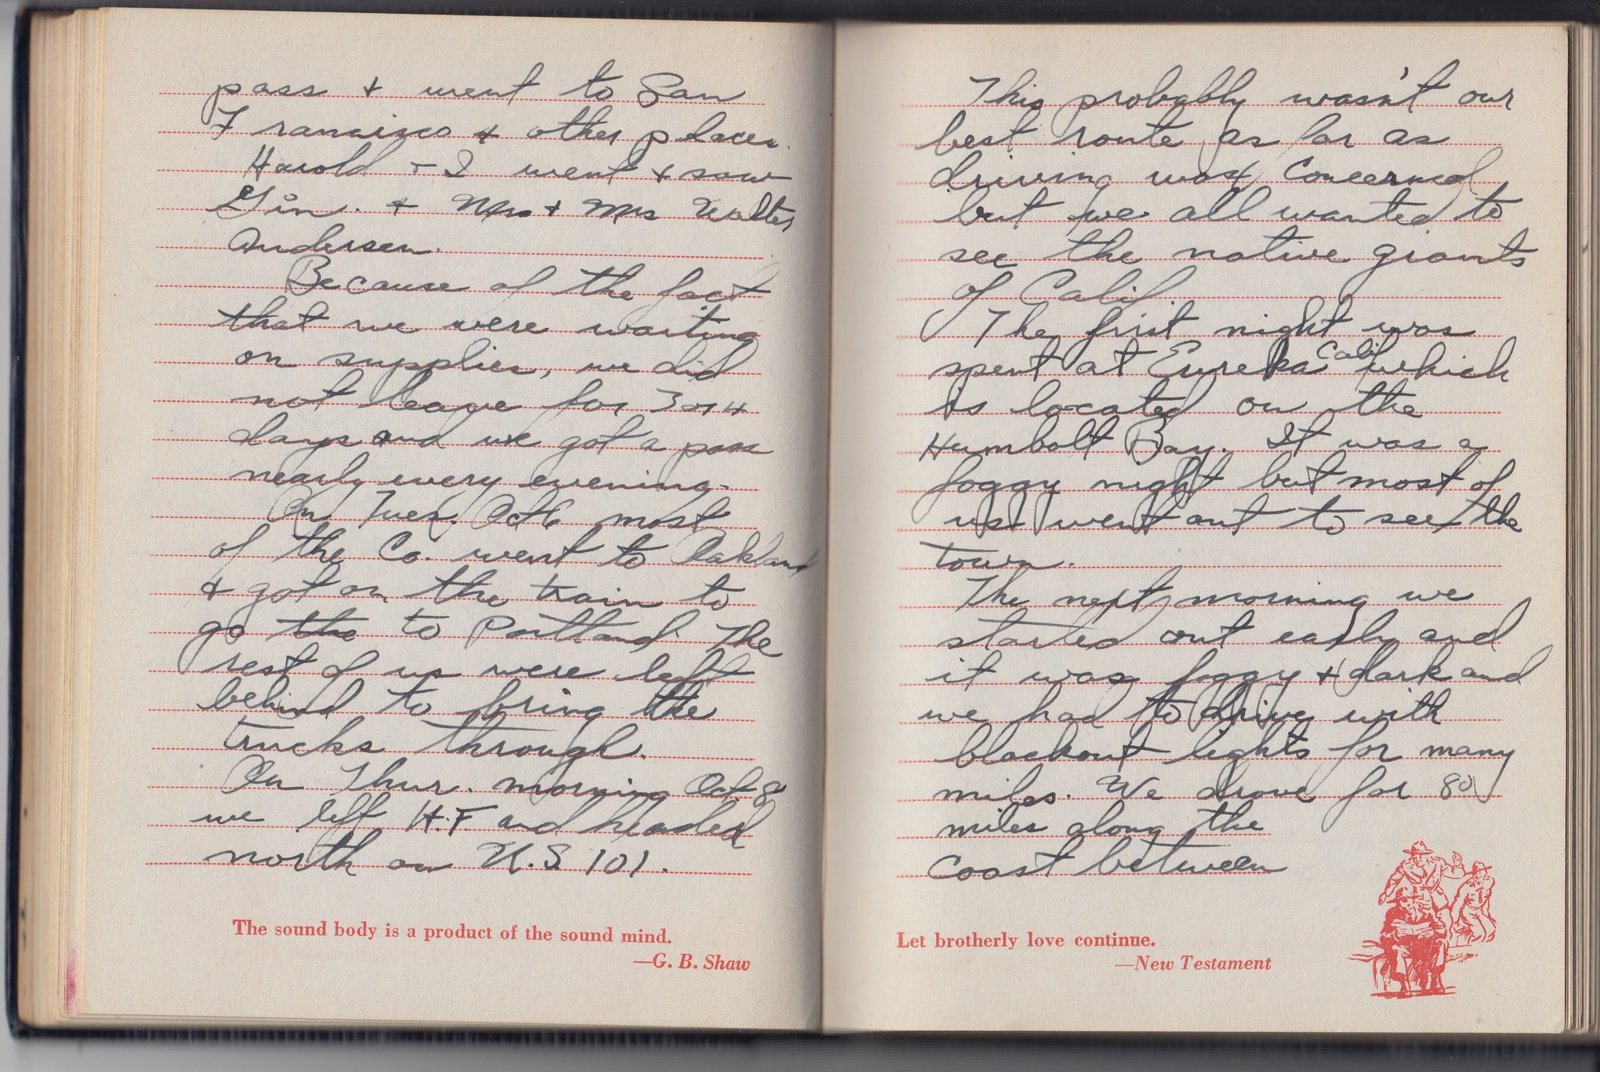 pass + went to San
Francisco + other places.
Harold + I went + saw
Gin. + Mr + Mrs Walter
Andersen.
Because of the fact
that we were waiting
on supplies, we did
not leave for 3 or 4
days and we got a pass
nearly every evening.
On Tues. Oct 6 most
of the Co. went to Oakland
+ got on the train to
go the to Portland. The
rest of us were left
behind to bring the
trucks through.
On Thur. morning Oct 8
we left H.F and headed
north on U.S 101.
The sound body is a product of the sound mind.
—G. B. Shaw
This probably wasn't our
best route as far as
driving was concerned
but we all wanted to
see the native giants
of Calif
The first night was
spent at Eureka Calif which
is located on the
Humbolt Bay. It was a
foggy night but most of
us went out to see the
town.
The next morning we
started out early and
it was foggy + dark and
we had to drive with
blackout lights for many
miles. We drove for 80
miles along the
coast between
Let brotherly love continue.
—New Testament